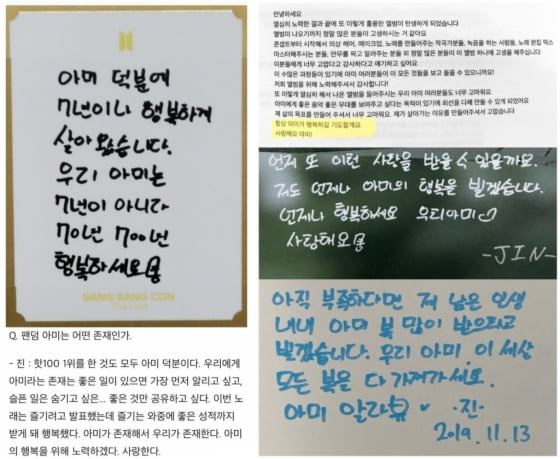 아미 덕분에
7년이나 행복하게
살아 왔습니다.
우리 아미는
7년이 아니라
70년 700년
행복하세요
BANG BANG CON
The Live
Q. 팬덤 아미는 어떤 존재인가.
- 진 : 핫100 1위를 한 것도 모두 아미 덕분이다. 우리에게
아미라는 존재는 좋은 일이 있으면 가장 먼저 알리고 싶고,
슬픈 일은 숨기고 싶은... 좋은 것만 공유하고 싶다. 이번 노
래는 즐기려고 발표했는데 즐기는 와중에 좋은 성적까지
받게 돼 행복했다. 아미가 존재해서 우리가 존재한다. 아미
의 행복을 위해 노력하겠다. 사랑한다.
안녕하세요
열심히 노력한 결과 끝에 또 이렇게 훌륭한 앨범이 탄생하게 되었습니다
앨범이 나오기까지 정말 많은 분들이 고생하시는 거 같아요
콘셉트부터 시작해서 의상 헤어, 메이크업, 노래를 만들어주는 작곡가분들, 녹음을 하는 사람들, 노래 편집 믹스
마스터해주시는 분들, 안무를 짜고 알려주는 분들 등등 말하고 싶어도 끝도 없을 정도로 많은 분들이 이 앨범 하나에 고생을 해주십니다
이분들에게 너무 고맙다고 감사하다고 얘기하고 싶어요
이 수많은 과정들이 있기에 아미 여러분들이 이 모든 것들을 보고 들을 수 있으니까요!
저희 앨범을 위해 노력해주셔서 감사합니다!
또 이렇게 열심히 해서 나온 앨범을 들어주시는 우리 아미 여러분들도 너무 고마워요.
아미에게 좋은 음악 좋은 무대를 보여주고 싶다는 목적이 있기에 최선을 다해 만들 수 있게 되었어요
제 삶의 목표를 만들어 주셔서 너무 고마워요. 제가 살아가는 이유를 만들어주셔서 고맙습니다
항상 아미가 행복하길 기도할게요
사랑해요 아미!
언제 또 이런 사랑을 받을 수 있을까요..
저도 언제나 아미의 행복을 빌겠습니다.
언제나 행복하세요 우리아미♡
사랑해요
-JIN-
아직 부족하다면 저 남은 인생
내내 아미 복 많이 받으라고
빌겠습니다. 우리 아미 이 세상
모든 복을 다 가져가세요.
아미 알라뷰 ♥ -진-
2019.11.13